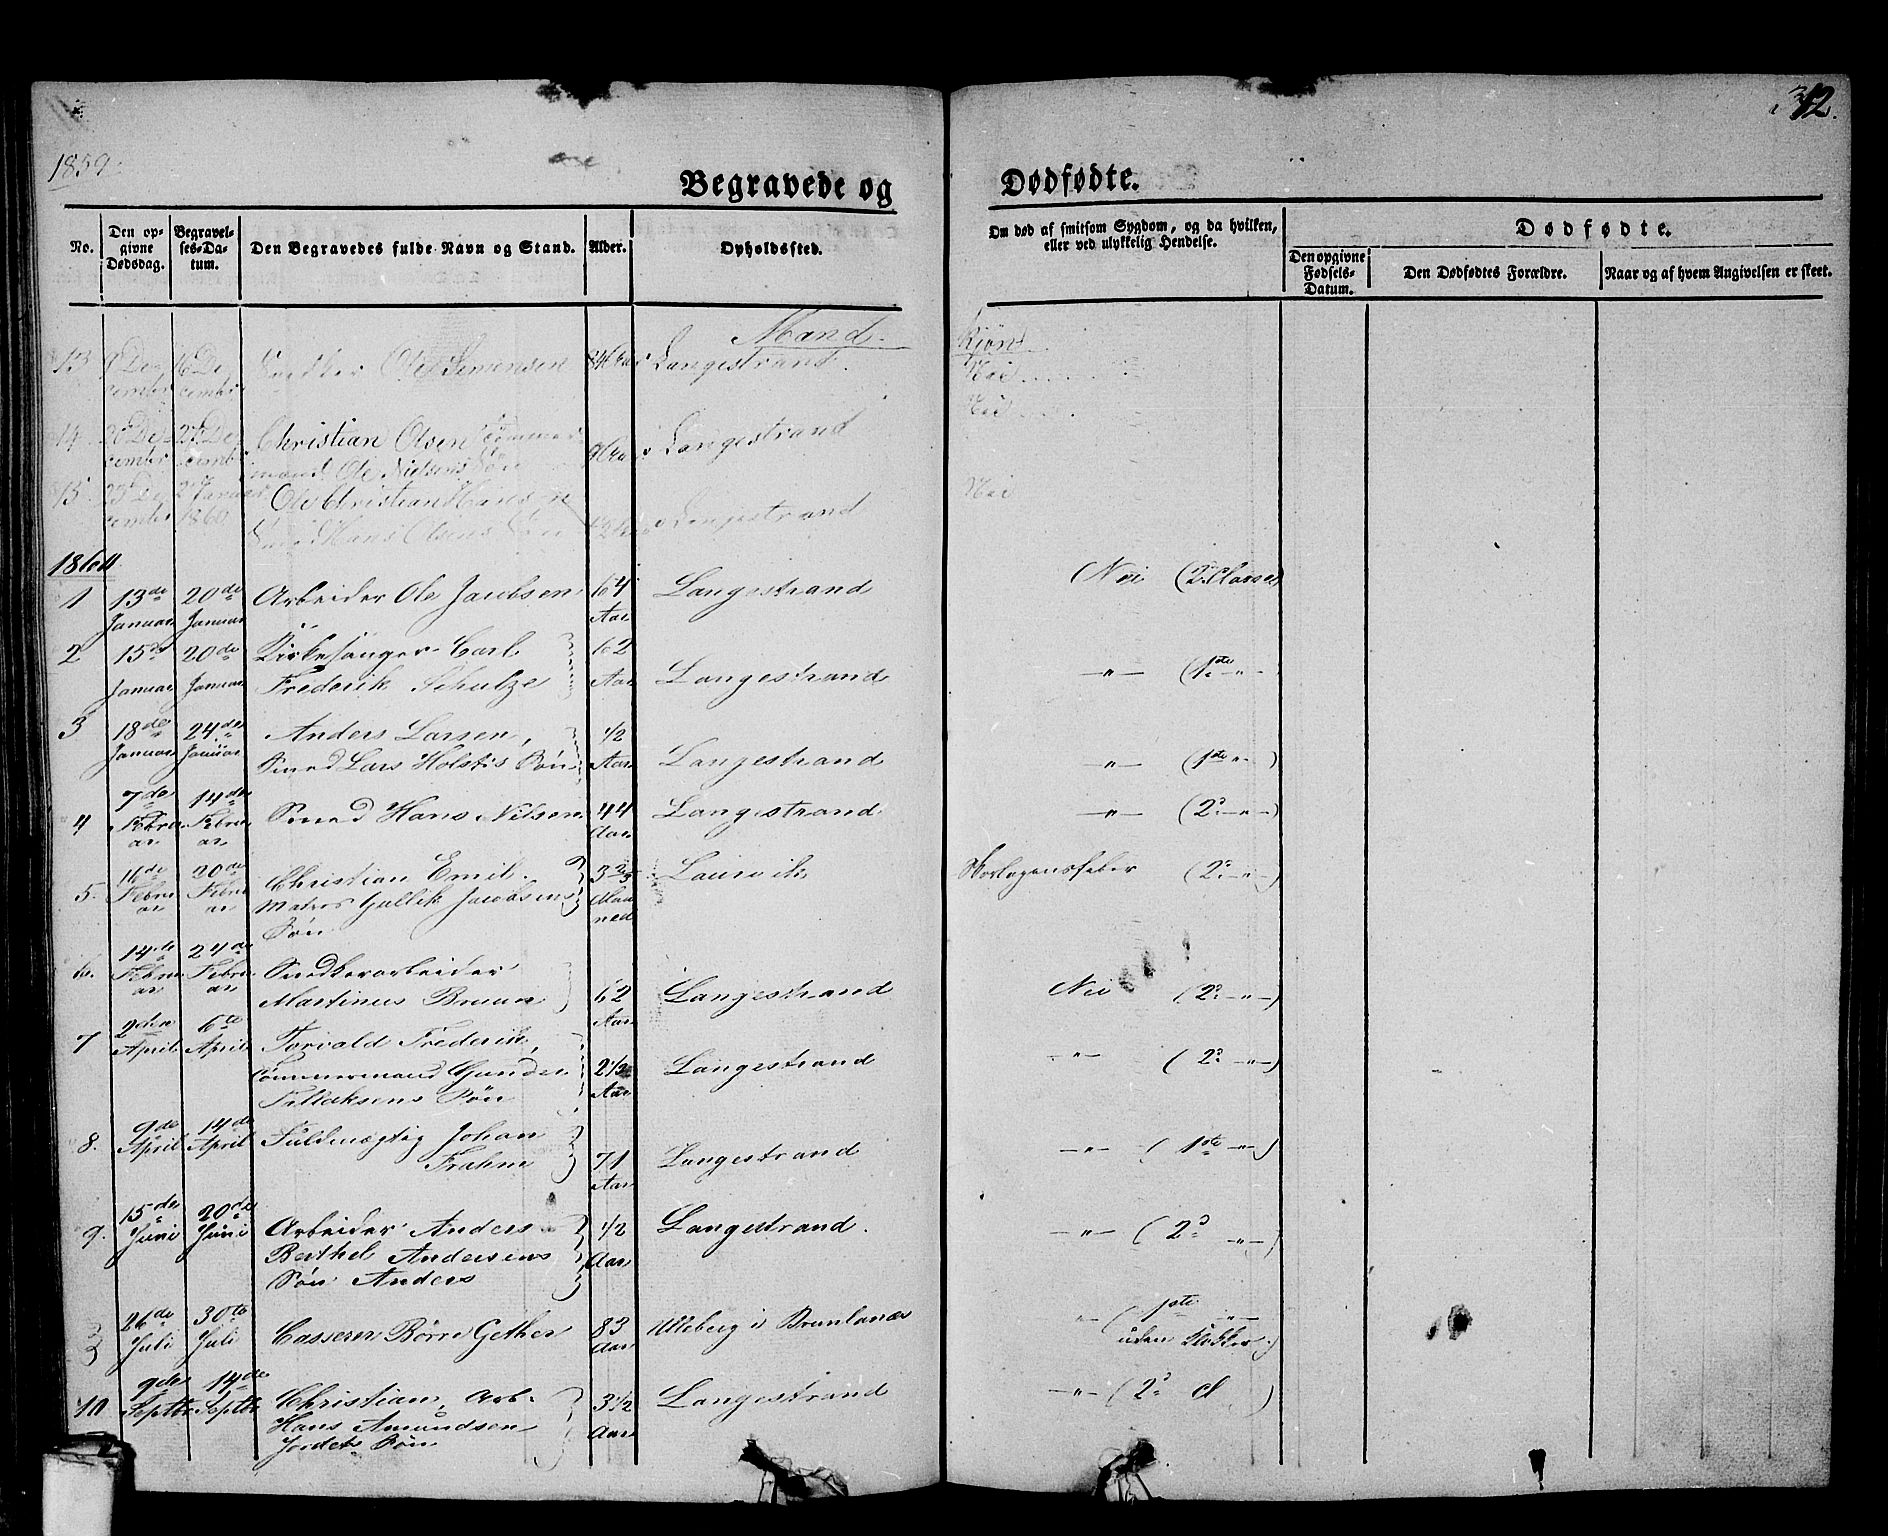 1859.
12.
Begravede og Dødfødte.
No.
Den opgivne Dødsdag.
Begravelses-Datum.
Den Begravedes fulde Navn og Stand.
Alder.
Opholdssted.
Om død af smitsom Sygdom, og da hvilken, eller ved ulykkelig Hendelse.
Dødfødte.
Den opgivne Fødsels-Datum.
Den Dødfødtes Forældre.
Naar og af hvem Angivelsen er skeet.
Mand Kjøn
13 December 16 December Snedker Ole Simensen Langestrand. Nei
14. December 27 December Christian Olsen Tømmermand Ole Nielsens Søn Langestrand Nei
15. 23 December 2 Januar 1860 Ole Christian Hansen Smed Hans Olsens Søn Langestrand Nei
1860
1 13de Januar 20de Januar Arbeider Ole Jacobsen 64 Aar Langestrand Nei (2. Classe)
2 15de Januar 20de Januar Kirkesanger Carl Frederik Schulze 62 Aar Langestrand —"— (1ste —"—
3 18de Januar 24de Januar Anders Larsen, Smed Lars Holstis Søn 1/2 Aar Langestrand —"— (1ste "—)
4 7de Februar 14de Februar Smed Hans Nilsen 44 Aar Langestrand. —"— (2. —"—)
5. 16de Februar 20de Februar Christian Emil. Matros Gullik Jacobsens Søn 3 Maaned Laurvik Skarlagensfeber (2. —"—)
6. 14de Februar 24de Februar Snedkerarbeider Martinus Bruun 62 Aar Langestrand Nei (2. —"—)
7 2den April 6te April Torvald Frederik, Tømmermand Gunder Tellaksens Søn 2 1/2 Aar Langestrand —"— (2. —"—)
8. 9de April 14de April Fuldmægtig Johan Frahm 71 Aar Langestrand —"— (1ste —"—)
9. 15de Juni 20de Juni Arbeider Anders Berthel Andersens Søn Anders 1/2 Aar Langestrand. —"— (2. —"—)
26de Juli 30te Juli Casserer Børre Gether 83 Aar Alleberg i Brunlanæs —"— (1ste —"— uden Klokker.)
10 9de Septbr 14de Septbr Christian, Arb. Hans Amundsen Jordets Søn 3 1/2 Aar Langestrand —"— (2. cl )